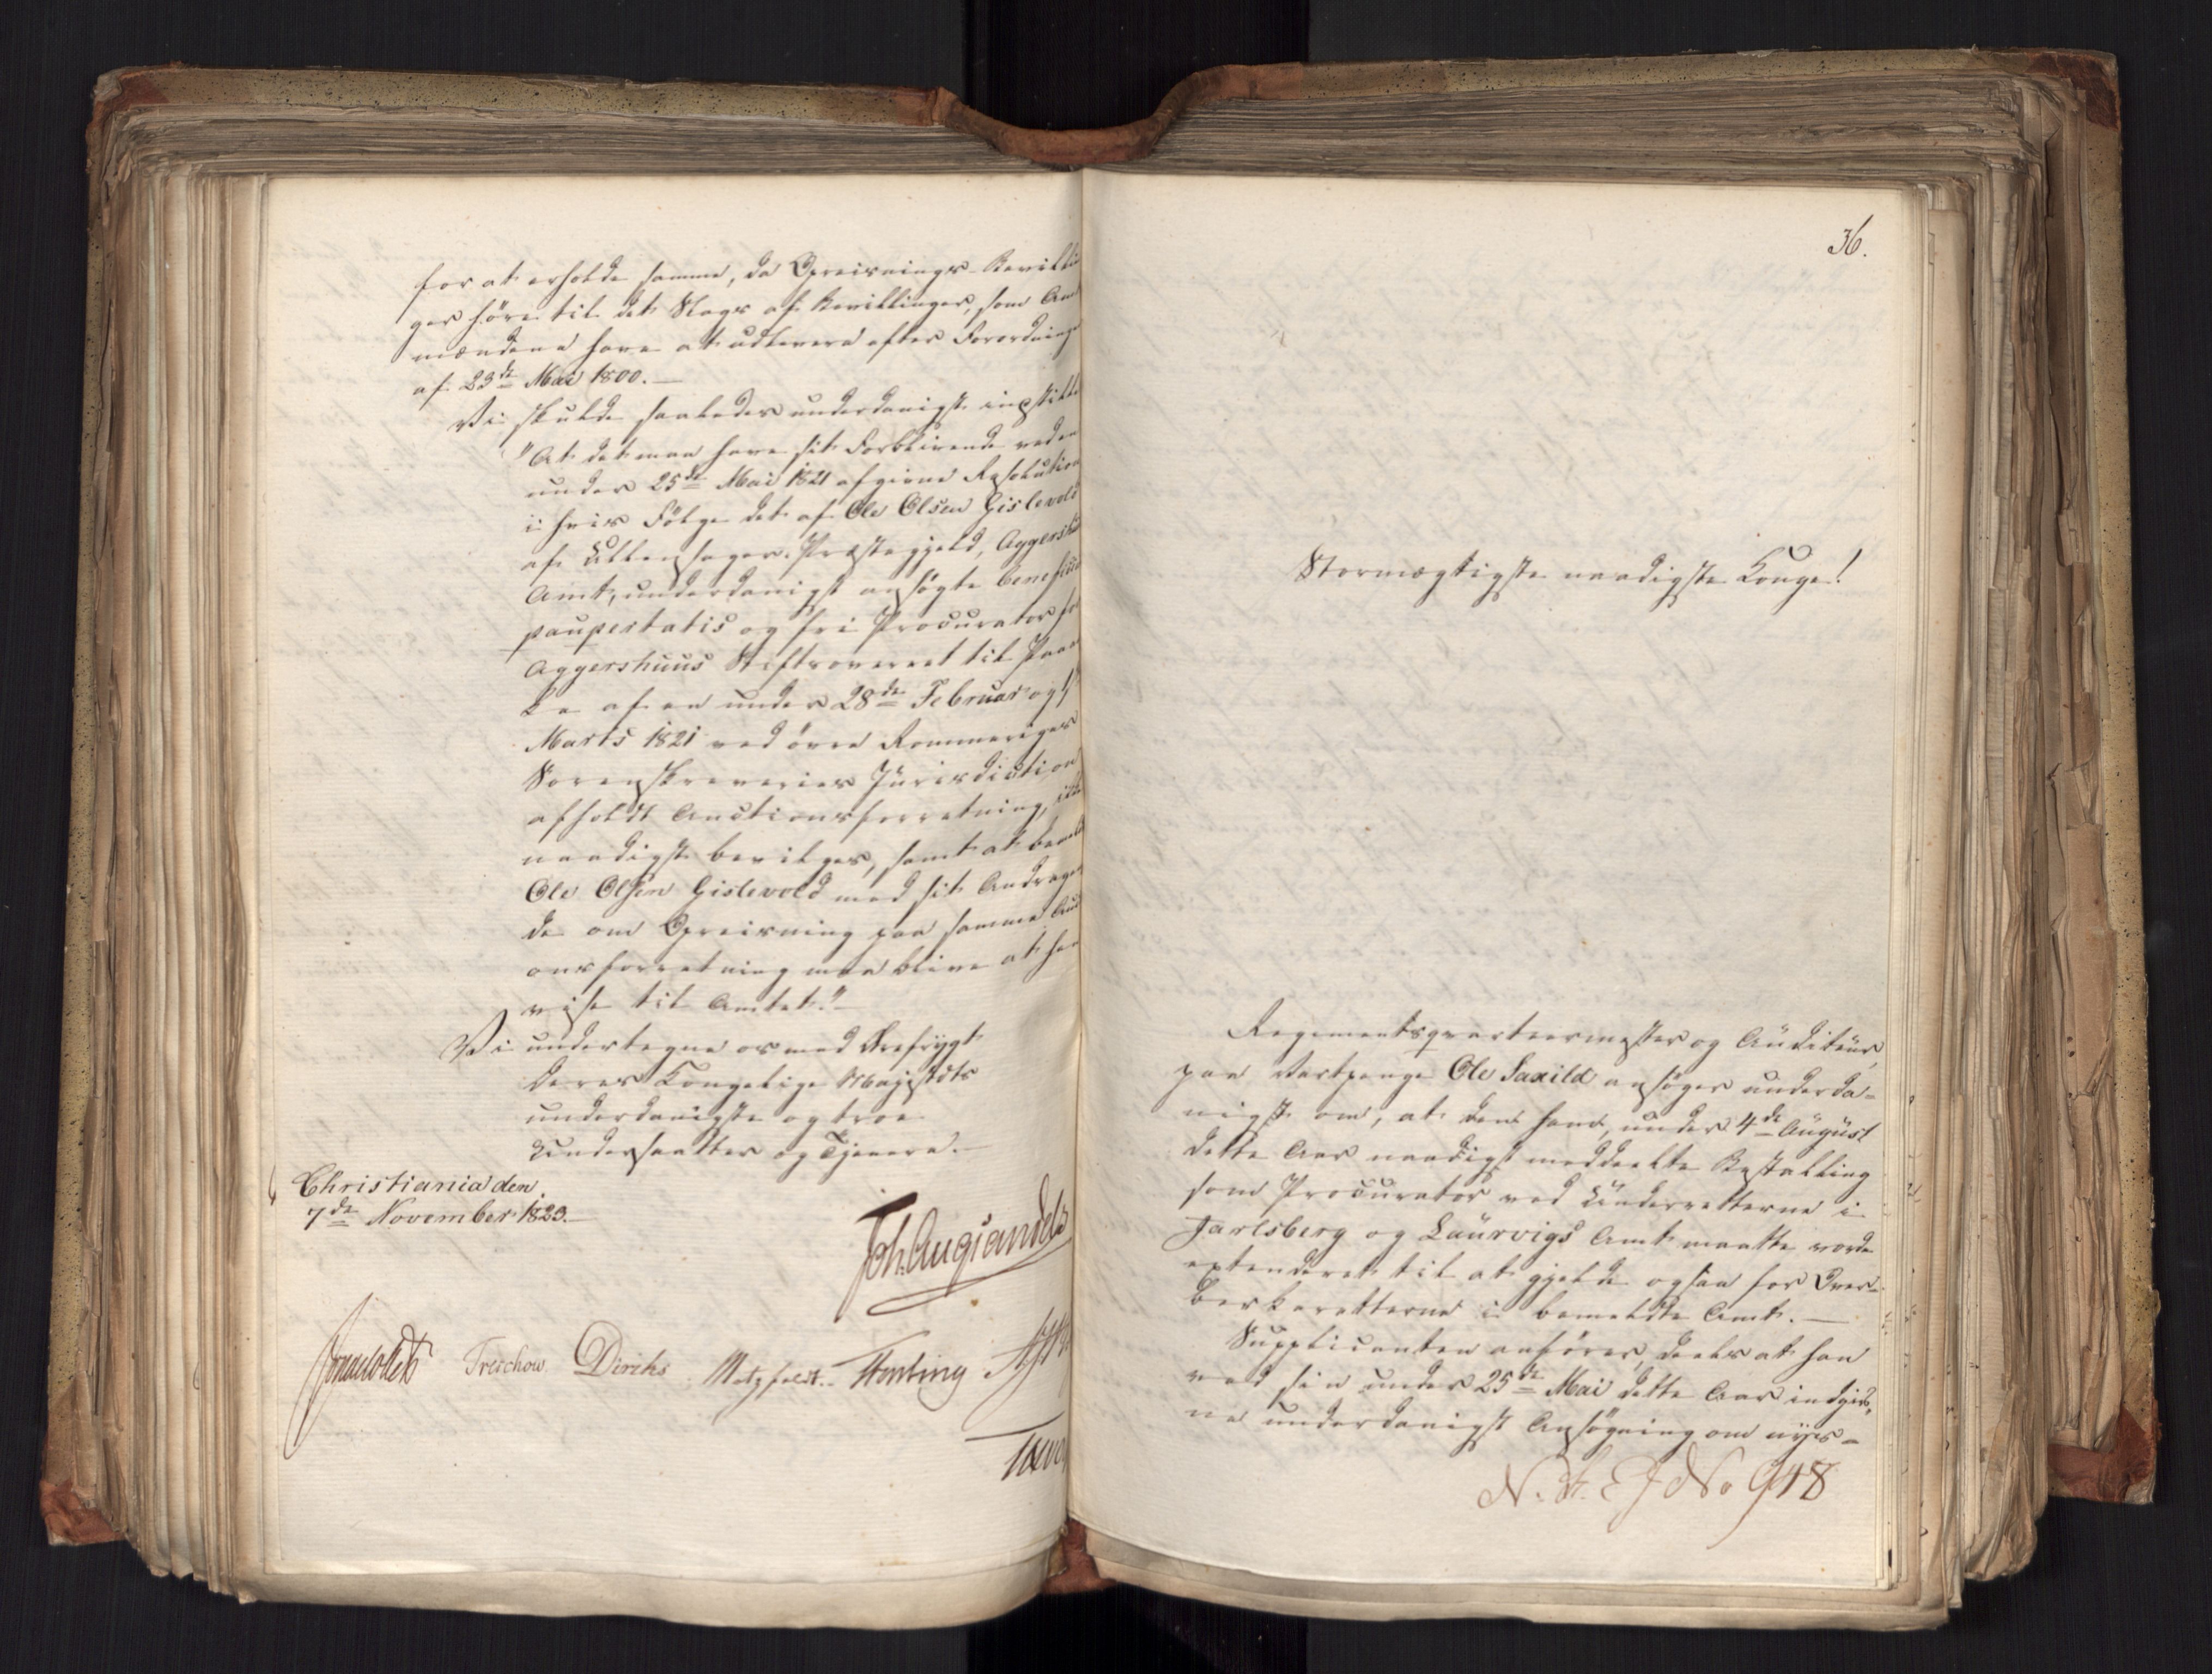 for at erholde samme, da Opreisnings-Bevillin
ger höre til det Slags af Bevillinger, som Amt
mændene have at udlevere efter Forordning
af 23de Mai 1800.—
Vi skulde saaledes underdanigst indstille
"At det maa have sit Forblivende ved en
under 25de Mai 1821 afgivne Resolution
i hvis Følge det af Ole Olsen Gislevold
af Ullensager Præstegjeld, Aggershuus
Amt, underdanigst ansøgte beneficium
paupertatis og fri Procurator for
Aggershuus Stiftsoverret til Paan
ke af en under 28de Februar og
Marts 1821 ved övre Rommeriges
Sorenskriveries Jurisdiction
afholdt Auctionsforretning, ikke
naadigst bevilges, samt at bemeldte
Ole Olsen Gislevold med sit Andragen
de om Opreisning paa samme Aucti
onsforretning maa blive at hen
vise til Amtet."
Vi undertegne os med Ærefrygt
Deres Kongelige Majestæts
underdanigste og troe
Undersaatter og Tjenere.—
Christiania den
7de November 1823.—
Joh. Aug. Sandels
Sommerhielm Treschow Diriks Motzfeldt. Fasting
36.
Stormægtigste naadigste Konge!
Regimentsqvarteermester og Auditeur
paa Vartpenge Ole Saxild ansøger underda-
nigst om, at den ham, under 4de August
dette Aar naadigst meddeelte Bestalling
som Procurator ved Underretterne i
Jarlsberg og Laurvigs Amt maatte vorde
extenderet til at gjelde ogsaa for Over-
berksretterne i bemeldte Amt.—
Supplicanten anfører, deels at han
ved sin under 25de Mai dette Aar indgiv-
ne underdanigst Ansøgning om nysn-
No 948